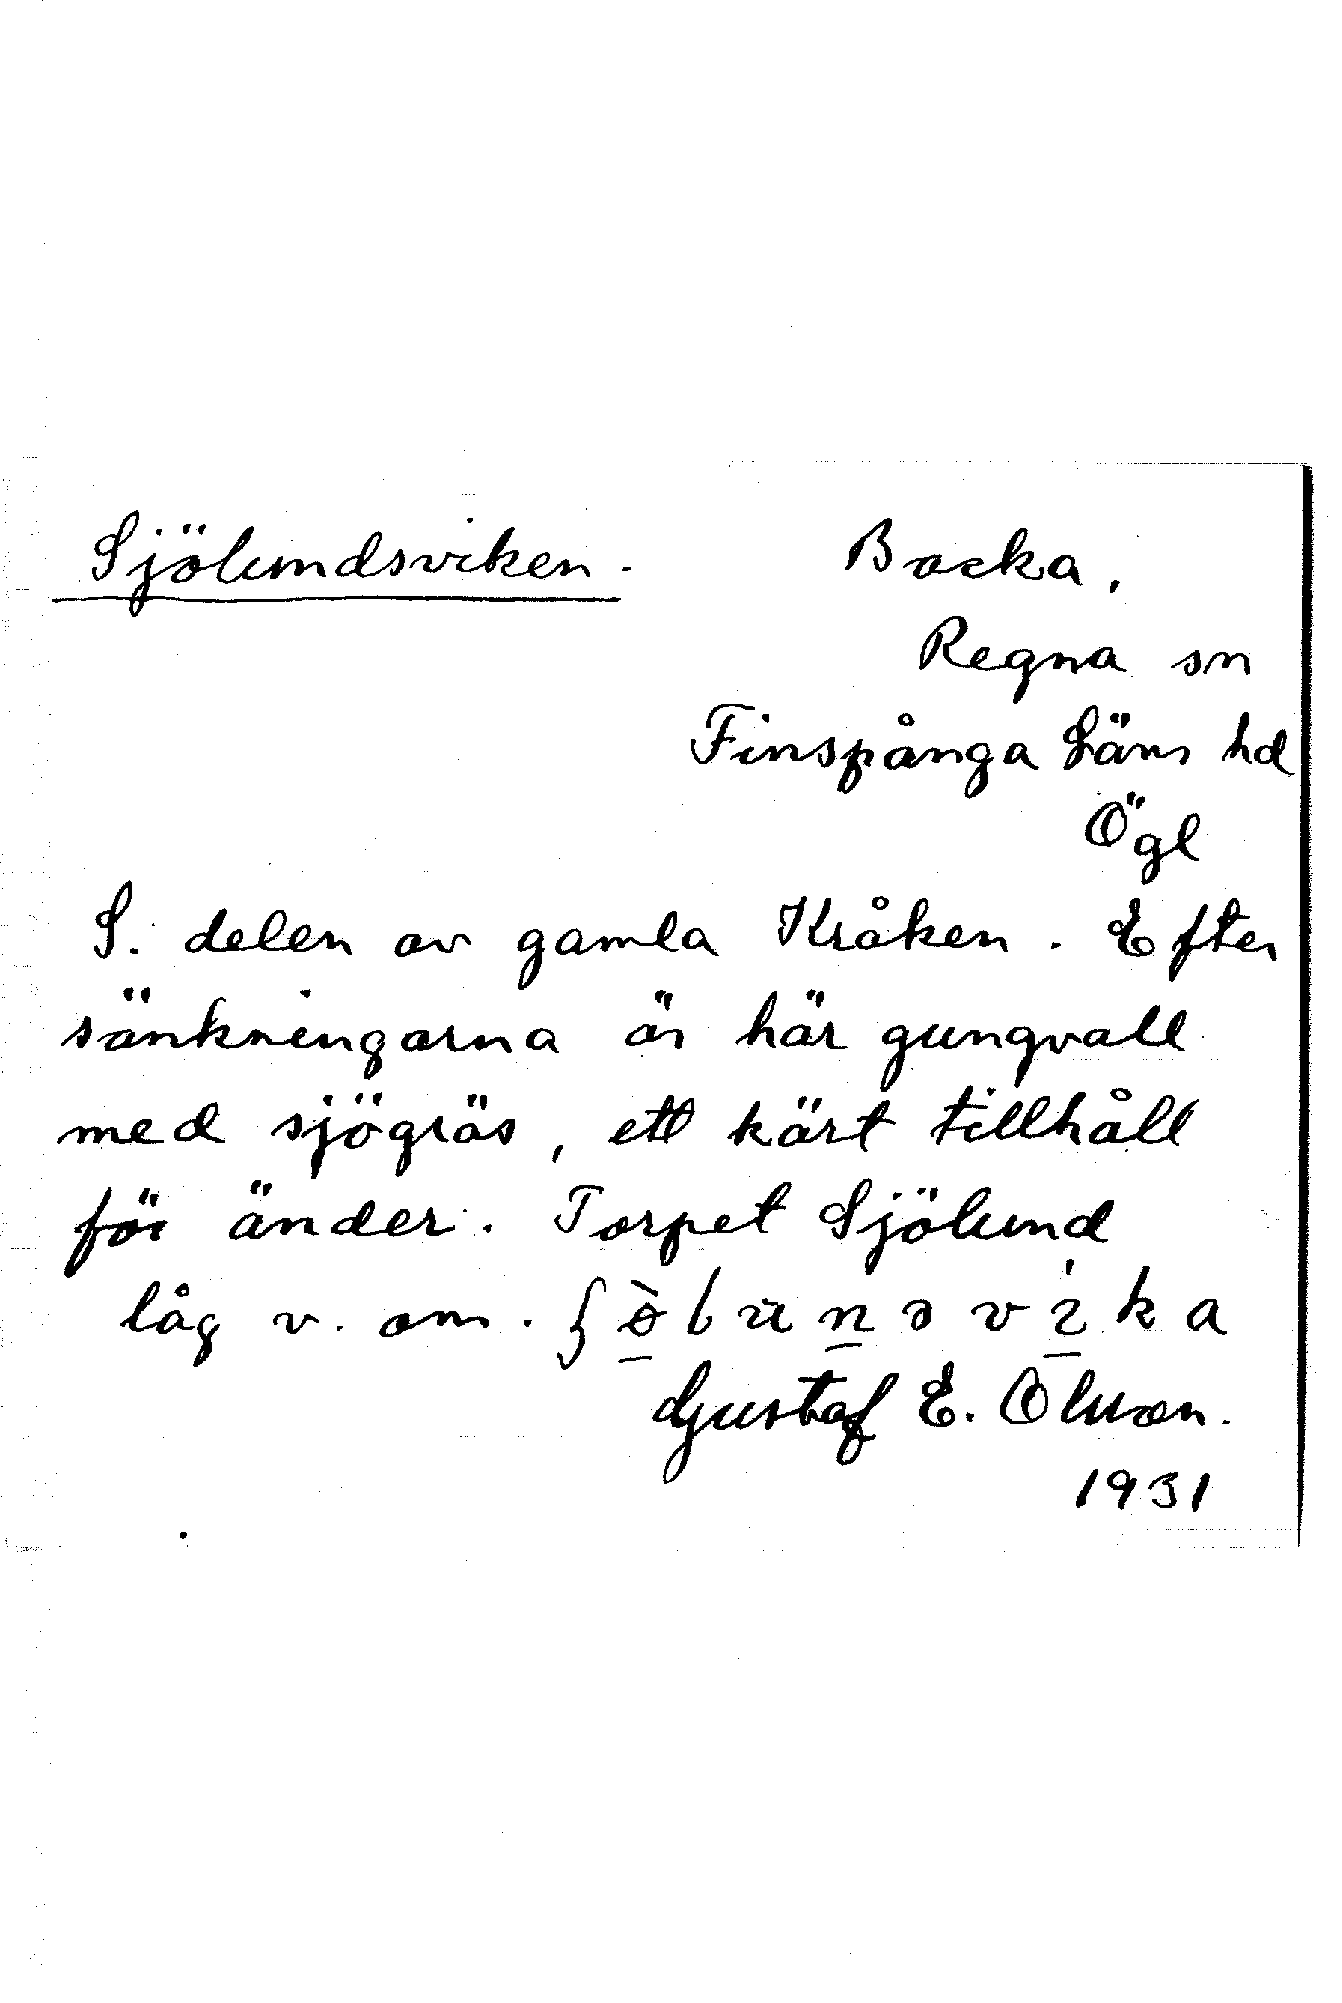 Sjölundsviken. Backa,
Regna sn
Finspånga Läns hd
Ögl
S. delen av gamla Kråken. Efter
sänkningarna är här gungvall
med sjögräs, ett kärt tillhåll
för änder. Torpet Sjölund
låg v. om.
Gustaf E. Olsson.
1931